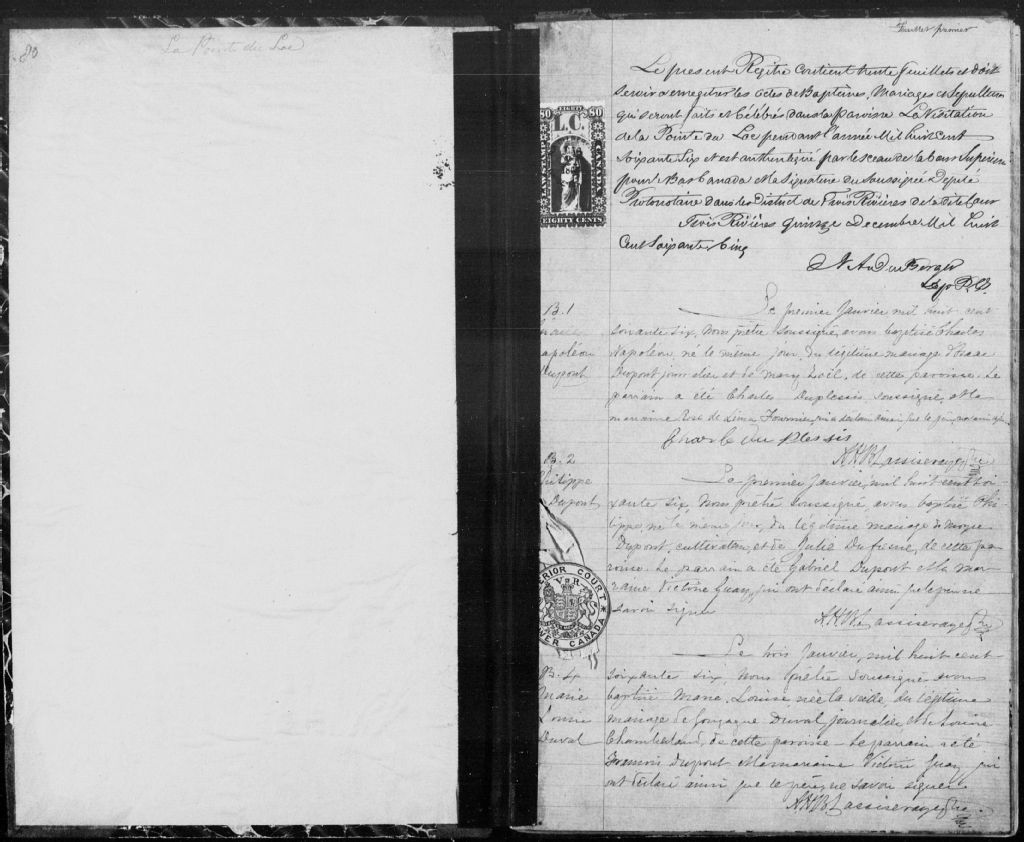 La Pointe du Lac
Feuillet premier
Le present Régitre Contient trente feuillets et doit
servir a enregitrer les actes de Baptemes, Mariages et Sepultures
qui seront faits et Célébrés dans la paroisse La Visitation
de la Pointe du Lac pendant l'année Mil huit Cent
Soixante Six et est authentiqué par le sceau de la Cour Superieure
pour le Bas Canada et la Signature du Soussignée Député
Protonotaire dans le District de Trois Rivières de la dite Cour
Trois Rivières quinze Decembre Mil huit
Cent Soixante Cinq
EIGHTY
80 L.C. 80
LAW STAMP
CANADA
EIGHTY CENTS
Dep P.
B. 1
Napoléon
Dupont
Le premier Janvier mil huit cent
soixante six, Nous prêtre soussigné, avons baptisé Charles
Napoléon, né le même jour, du légitime mariage d'Isaac
Dupont journalier et de Mary Noël, de cette paroisse. Le
parrain a été Charles Duplessis, soussigné, et la
marraine Rose de Lima Fournier, qui a déclaré ainsi que le père
Charle du Plessis
B. 2
Philippe
Dupont
Le premier Janvier, mil huit cent soi-
xante six, Nous prêtre soussigné, avons baptisé Phi-
lippe, né le même jour, du légitime mariage de
Dupont, cultivateur, et de Julie Dufresne, de cette pa-
roisse. Le parrain a été Gabriel Dupont et la mar-
raine Victoire Guay, qui ont déclaré ainsi que le père ne
savoir signer
SUPERIOR COURT
V R
LOWER CANADA
B. 4
Marie
Louise
Duval
Le trois Janvier, mil huit cent
soixante six, Nous prêtre soussigné avons
baptisé Marie Louise née la veille, du légitime
mariage de Gonzague Duval, journalier, et de Louise
Chamberland, de cette paroisse. Le parrain a été
François Dupont et la marraine Victoire Guay qui
ont déclaré ainsi que le père ne savoir signer